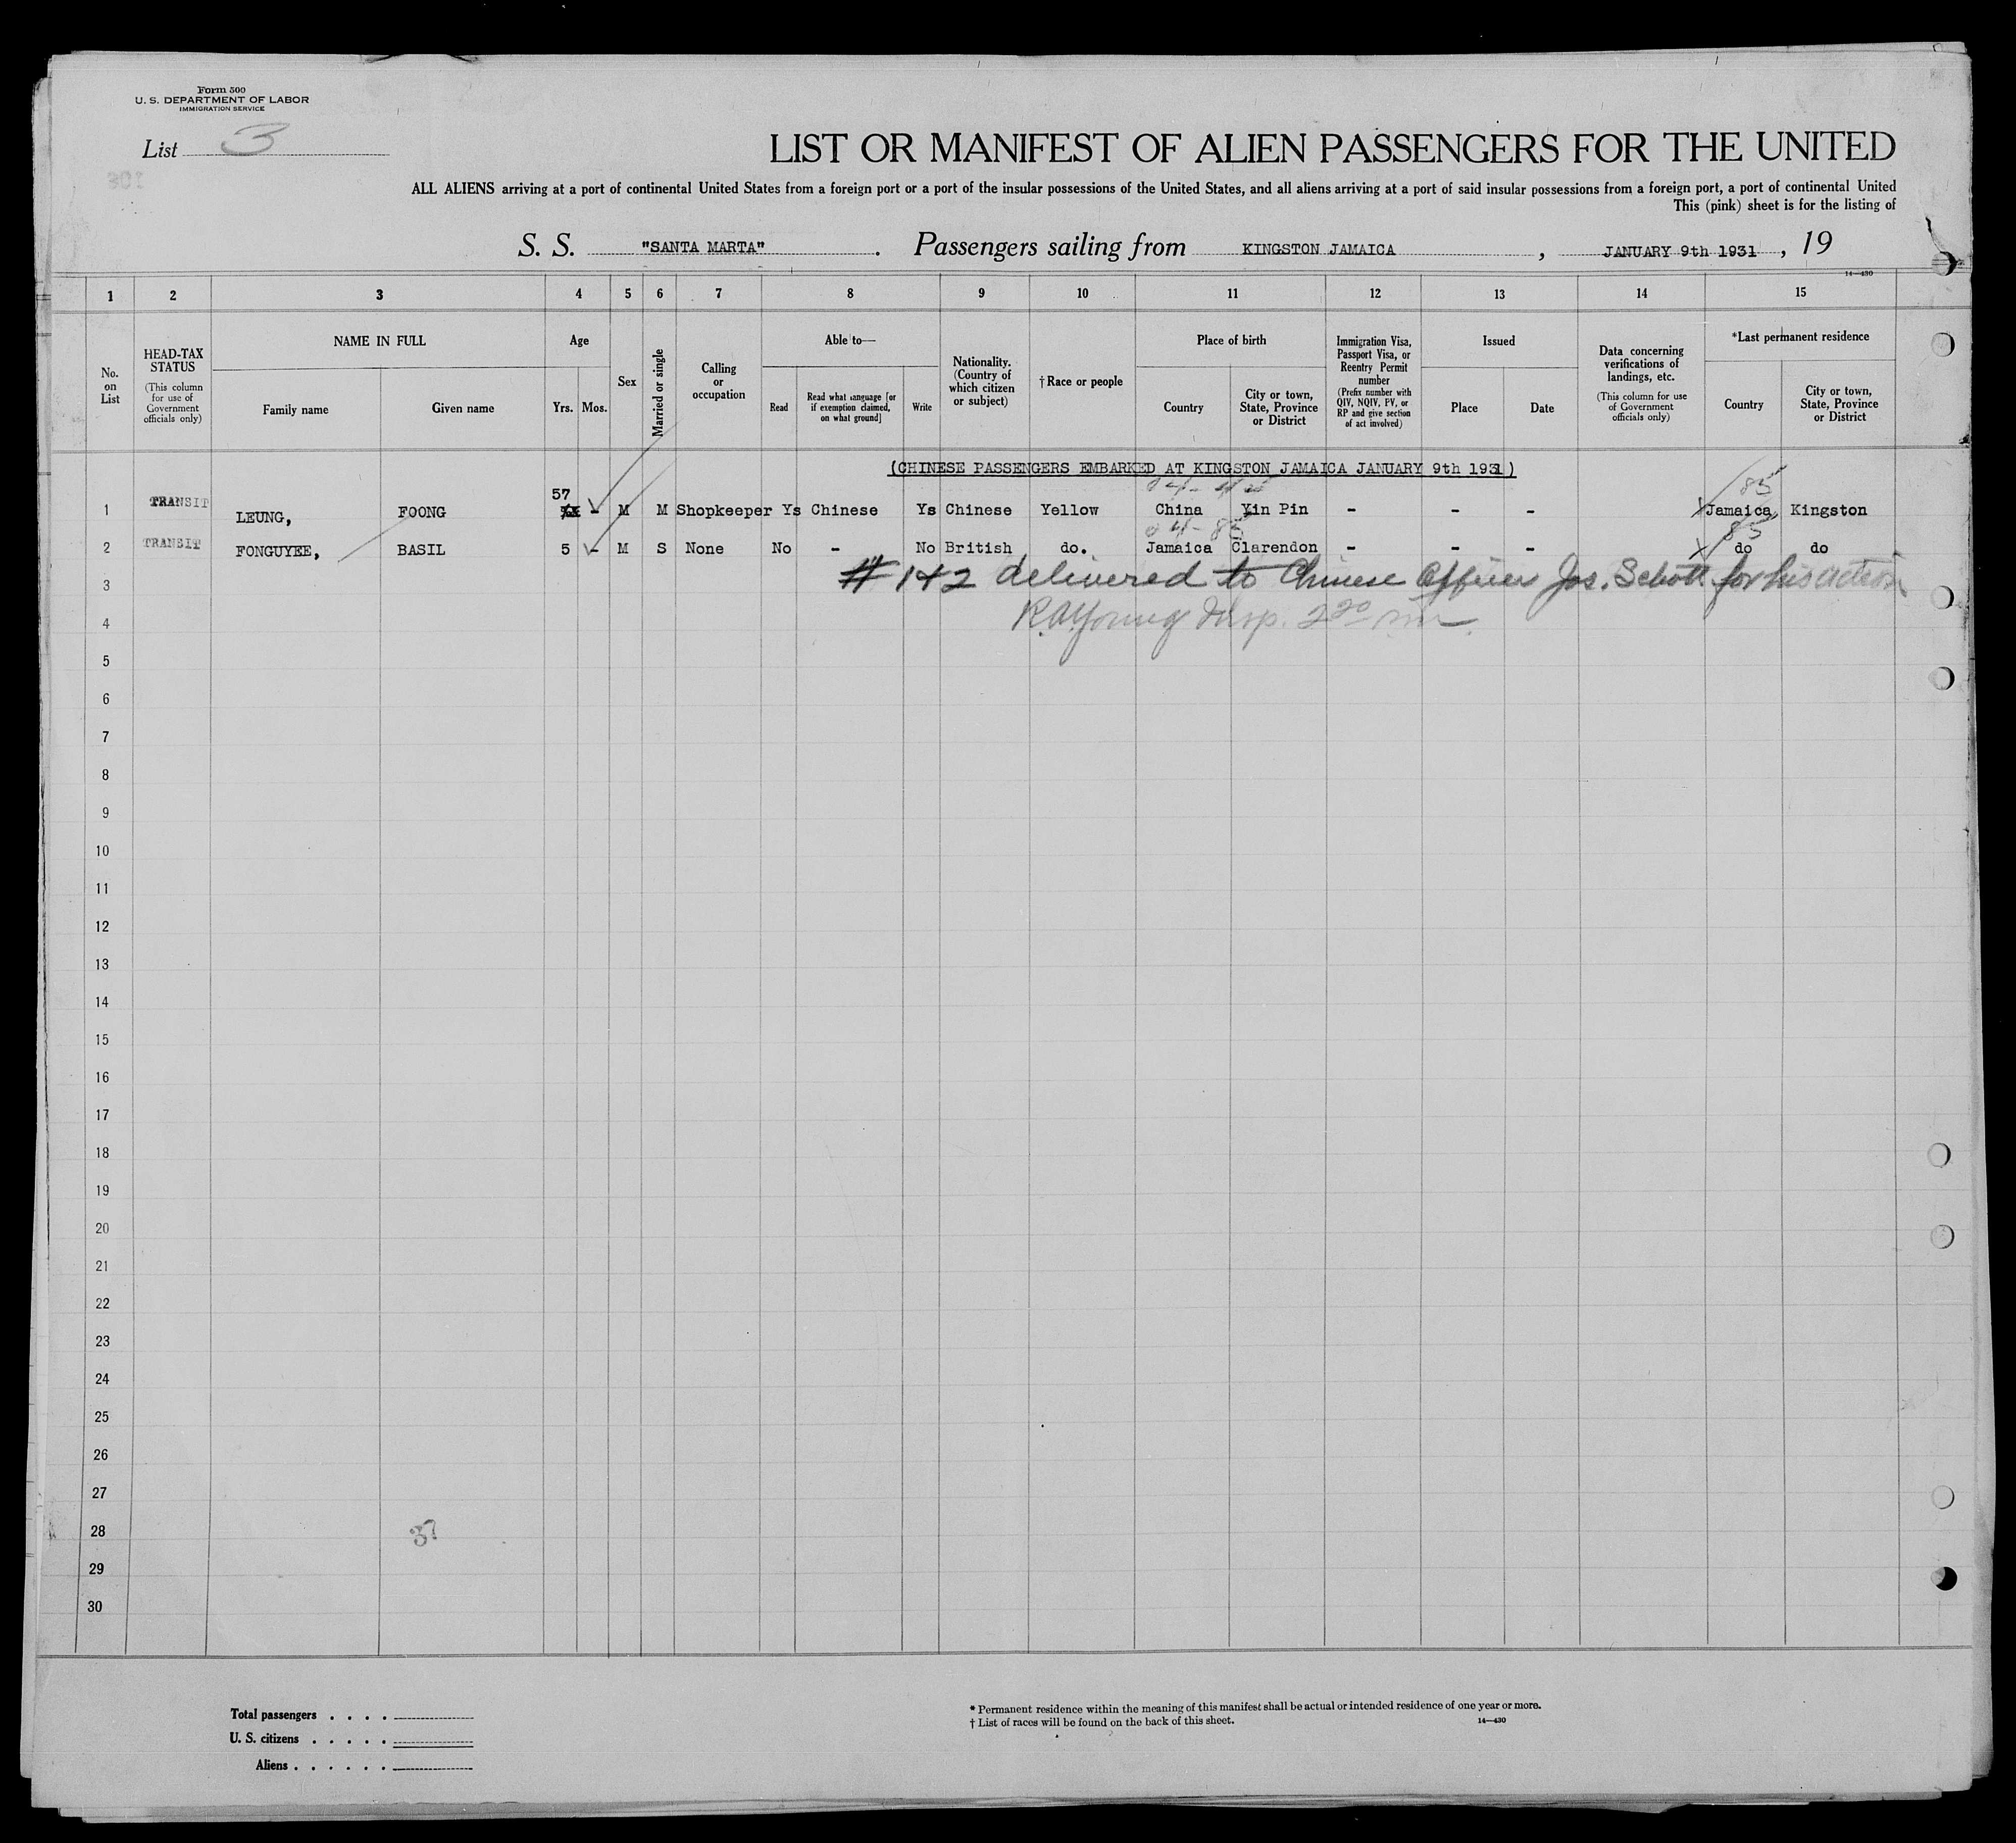 Form 500
U. S. DEPARTMENT OF LABOR
IMMIGRATION SERVICE
List 3
LIST OR MANIFEST OF ALIEN PASSENGERS FOR THE UNITED
ALL ALIENS arriving at a port of continental United States from a foreign port or a port of the insular possessions of the United States, and all aliens arriving at a port of said insular possessions from a foreign port, a port of continental United
This (pink) sheet is for the listing of
S. S. "SANTA MARTA". Passengers sailing from KINGSTON JAMAICA, JANUARY 9th 1931, 19
14—430
1 2 3 4 5 6 7 8 9 10 11 12 13 14 15
No. on List
HEAD-TAX STATUS
(This column for use of Government officials only)
NAME IN FULL
Family name
Given name
Age
Yrs. Mos.
Sex
Married or single
Calling or occupation
Able to—
Read
Read what language [or if exemption claimed, on what ground]
Write
Nationality. (Country of which citizen or subject)
† Race or people
Place of birth
Country
City or town, State, Province or District
Immigration Visa, Passport Visa, or Reentry Permit number
(Prefix number with QIV, NQIV, PV, or RP and give section of act involved)
Issued
Place
Date
Data concerning verifications of landings, etc.
(This column for use of Government officials only)
*Last permanent residence
Country
City or town, State, Province or District
(CHINESE PASSENGERS EMBARKED AT KINGSTON JAMAICA JANUARY 9th 1931)
85
57
1 TRANSIT LEUNG, FOONG - M M Shopkeeper Ys Chinese Ys Chinese Yellow China Yin Pin - - - Jamaica Kingston
04-85 85
2 TRANSIT FONGUYEE, BASIL 5 - M S None No - No British do. Jamaica Clarendon - - - do do
# 1+2 delivered to Chinese Officer Jos. Schott for his action
3
R A Young Insp. 2 20 pm
4
5
6
7
8
9
10
11
12
13
14
15
16
17
18
19
20
21
22
23
24
25
26
27
28 37
29
30
Total passengers . . . .
U. S. citizens . . . . .
Aliens . . . . . .
* Permanent residence within the meaning of this manifest shall be actual or intended residence of one year or more.
† List of races will be found on the back of this sheet.
14—430